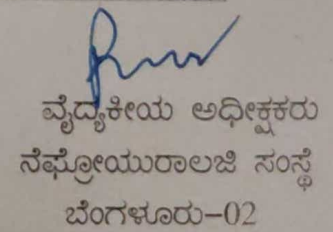 ವೈದ್ಯಕೀಯ ಅಧೀಕ್ಷಕರು
ನೆಫ್ರೋಯುರಾಲಜಿ ಸಂಸ್ಥೆ
ಬೆಂಗಳೂರು-02